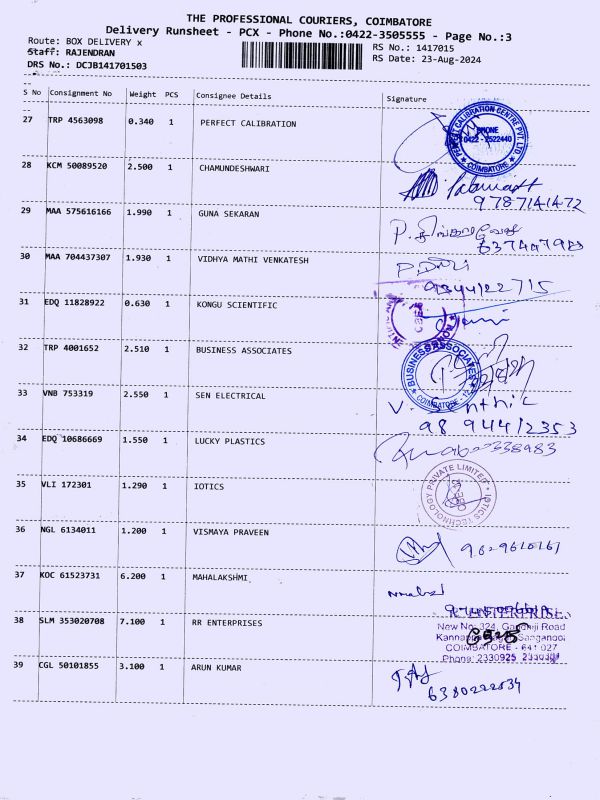 THE PROFESSIONAL COURIERS, COIMBATORE
Delivery Runsheet - PCX - Phone No.:0422-3505555 - Page No.:3
Route: BOX DELIVERY x RS No.: 1417015
Staff: RAJENDRAN RS Date: 23-Aug-2024
DRS No.: DCJB141701503
S No Consignment No Weight PCS Consignee Details Signature
27 TRP 4563098 0.340 1 PERFECT CALIBRATION
PERFECT CALIBRATION CENTRE PVT. LTD
PHONE
COIMBATORE
28 KCM 50089520 2.500 1 CHAMUNDESHWARI
9787141472
29 MAA 575616166 1.990 1 GUNA SEKARAN
30 MAA 704437307 1.930 1 VIDHYA MATHI VENKATESH
9344122715
31 EDQ 11828922 0.630 1 KONGU SCIENTIFIC
32 TRP 4001652 2.510 1 BUSINESS ASSOCIATES
BUSINESS ASSOCIATES
COIMBATORE - 12
33 VNB 753319 2.550 1 SEN ELECTRICAL
V. Senthil
98 94412353
34 EDQ 10686669 1.550 1 LUCKY PLASTICS
35 VLI 172301 1.290 1 IOTICS
IOTICS TECHNOLOGY PRIVATE LIMITED
36 NGL 6134011 1.200 1 VISMAYA PRAVEEN
37 KOC 61523731 6.200 1 MAHALAKSHMI
38 SLM 353020708 7.100 1 RR ENTERPRISES
ENTERPRISES
New No: 324, Gandhiji Road
COIMBATORE - 641 027
Phone: 2330925
39 CGL 50101855 3.100 1 ARUN KUMAR
6380222834